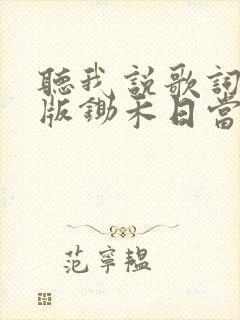 聽我説歌詞
版鋤禾日當
范寧韞